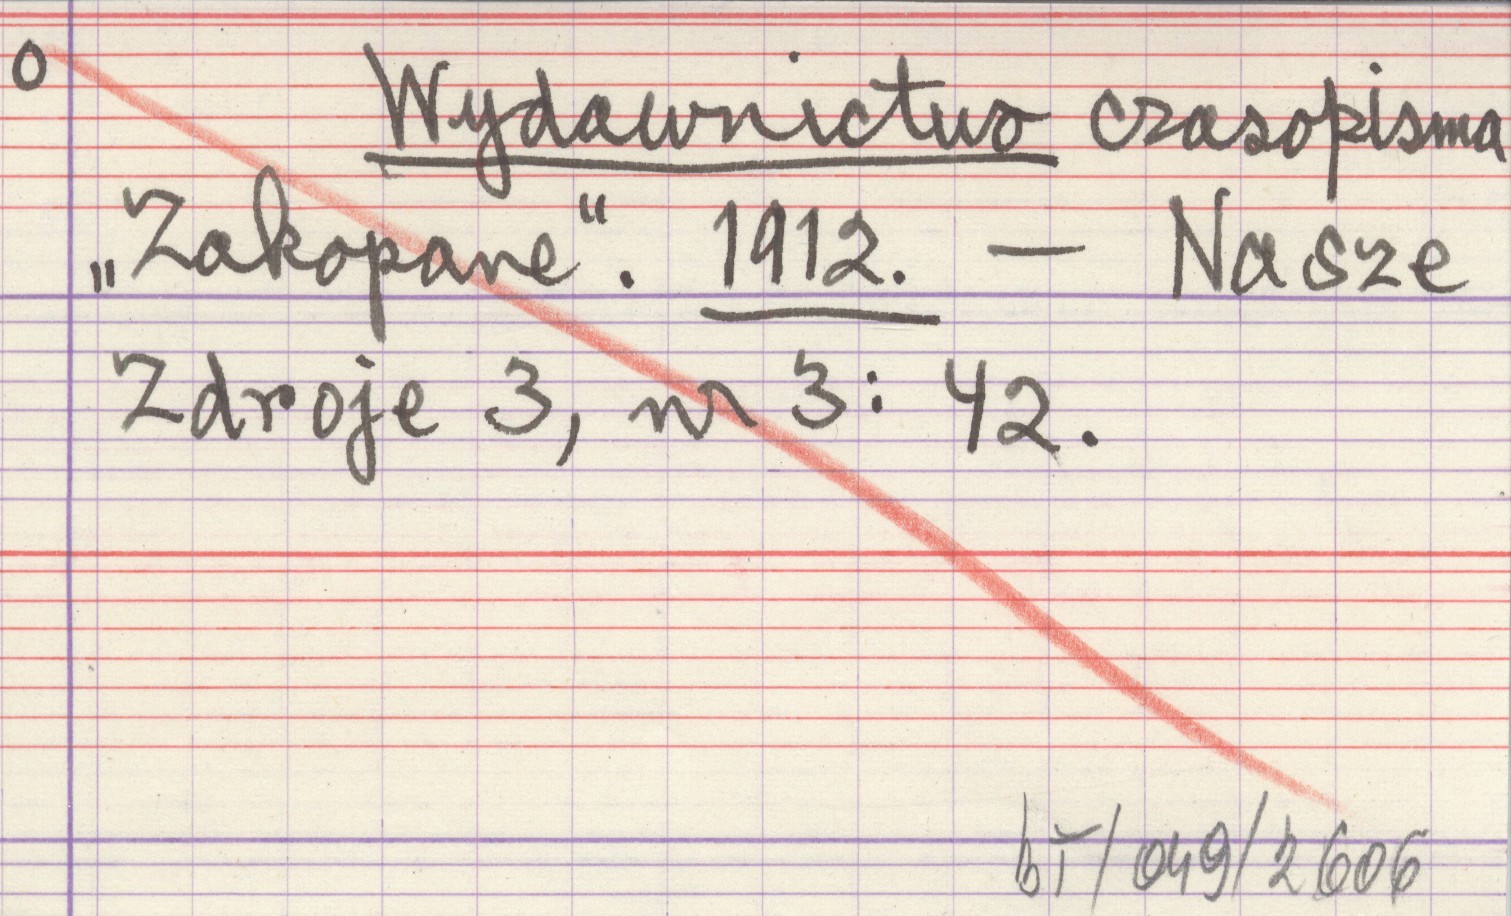 0
Wydawnictwo czasopisma
„Zakopane“. 1912. — Nasze
Zdroje 3, nr 3: 42.
bT/049/2606